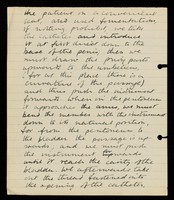 the patient on a convenient
seat, and and fomentation
if nothing prohibit, we take
the catheter and introduce
it at first direct down to the
base of the penis; then we
must draw the privy parts
upwards to the umbilicus
(for at this place there is a
curvature of the passage)
and thus push the instrument
forward. When in the perinaeum
it approaches the anus, we must
bend the member with the instrument
down to its natural position,
for from the perinaeum to
the bladder the passage is up-
wards, and we must push
the instrument
until it reach the cavity of the
bladder. We afterwards take
out the thread fastened into
the opening of the catheter